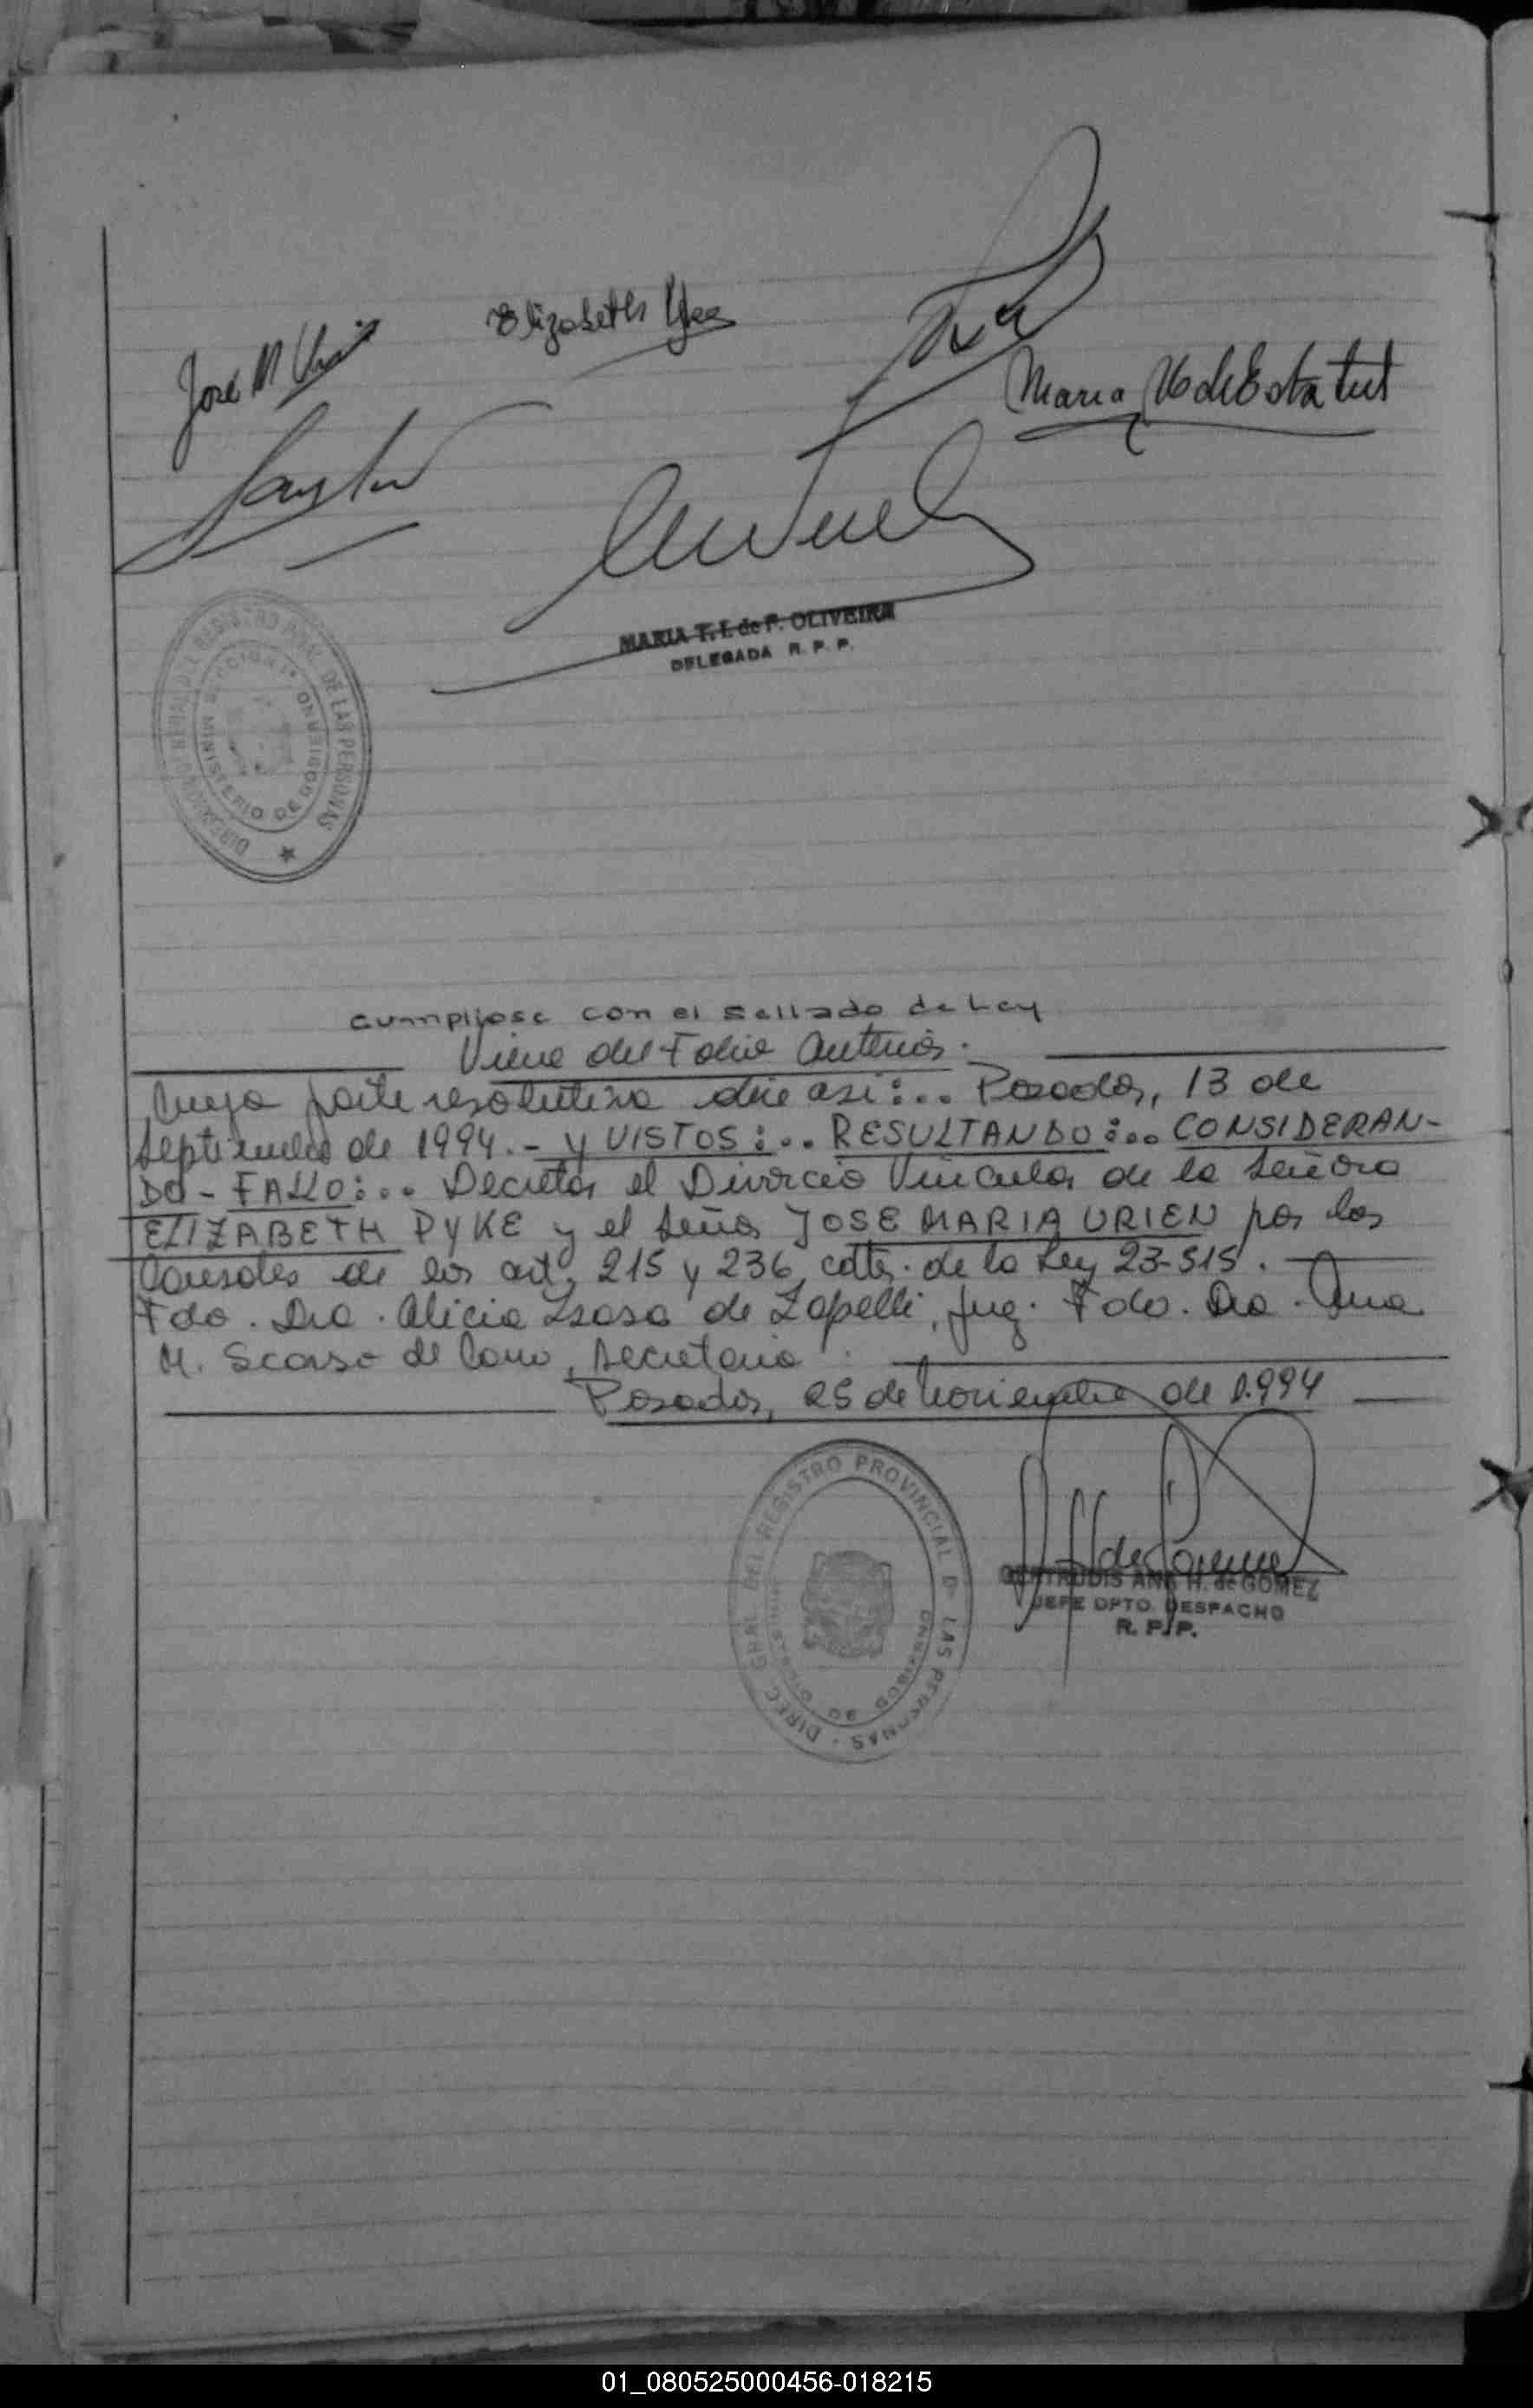 José M Urien
Elizabeth Pyke
Maria U de Estatut
MARIA T. I. de F. OLIVEIRA
DELEGADA R. P. P.
DIRECCION GENERAL DEL REGISTRO PVIAL DE LAS PERSONAS
MINISTERIO DE GOBIERNO
cumplijose con el sellado de Ley
Viene del Folio Anterior.
Cuya parte resolutiva dice asi:... Posadas, 13 de
Septiembre de 1994.- Y VISTOS:... RESULTANDO:... CONSIDERAN-
DO - FALLO:... Decretar el Divorcio Vincular de la Señora
ELIZABETH PYKE y el Señor JOSE MARIA URIEN por las
Causales de los art. 215 y 236 cdtes. de la Ley 23-515.
Fdo. Dra. Alicia Isasa de Zapelli, Juez. Fdo. Dra. Ana
M. Scarso de Cano, Secretaria.
Posadas, 25 de Noviembre de 1.994
DIREC. GRAL. DEL REGISTRO PROVINCIAL DE LAS PERSONAS
MINISTERIO DE GOBIERNO
GERTRUDIS ANA H. de GOMEZ
JEFE DPTO. DESPACHO
R. P. P.
01_080525000456-018215